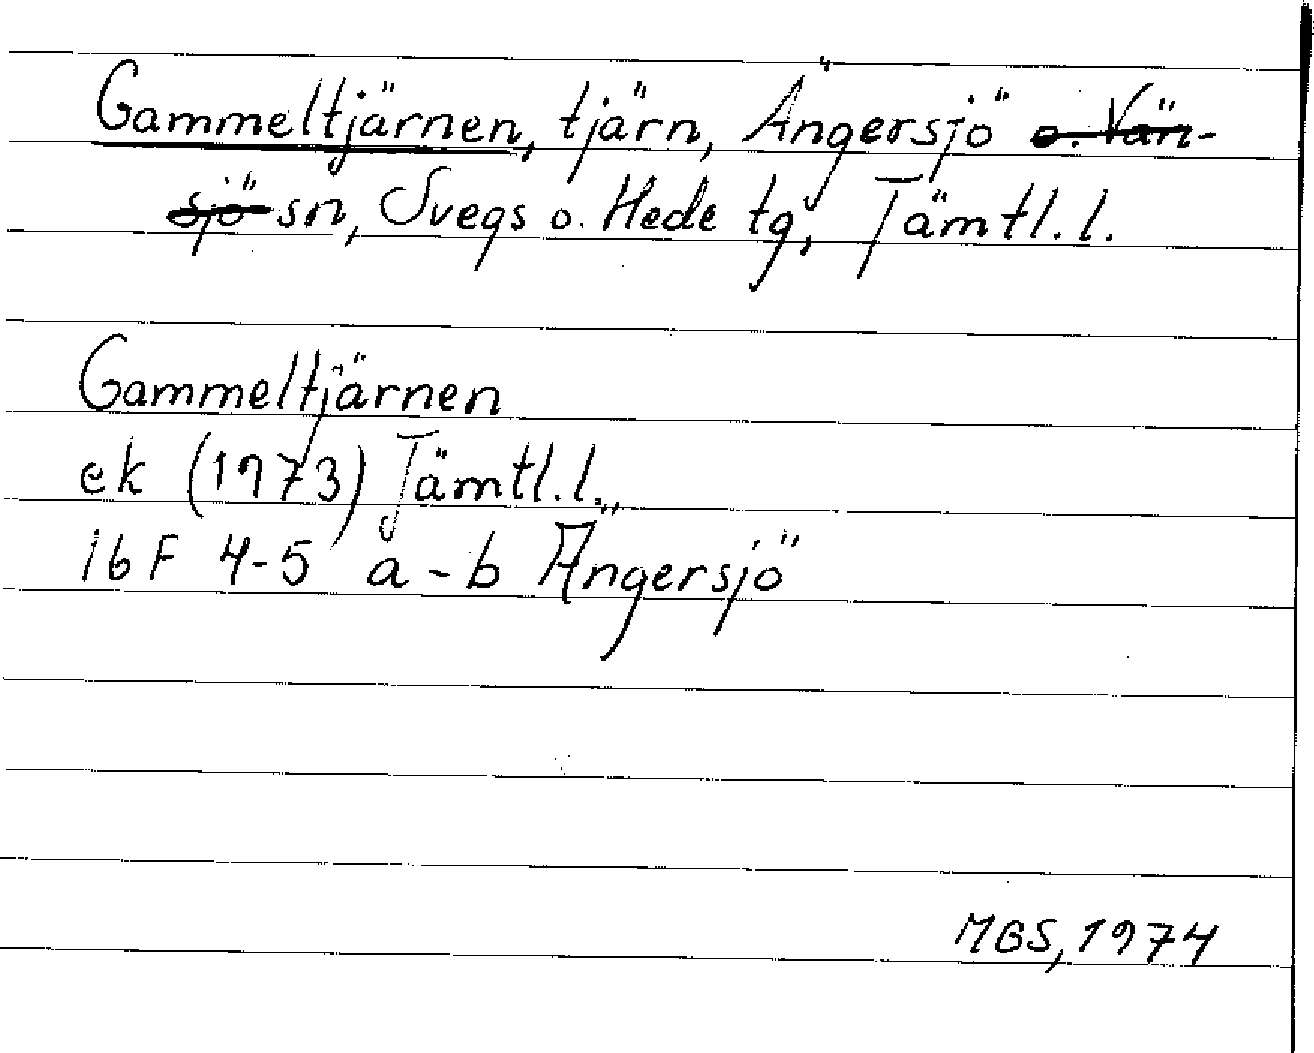 Gammeltjärnen, tjärn, Ängersjö o. Vän-
sjö sn, Svegs o. Hede tg, Jämtl. l.
Gammeltjärnen
ek (1973) Jämtl. l.
16F 4-5 a-b Ängersjö
MBS, 1974